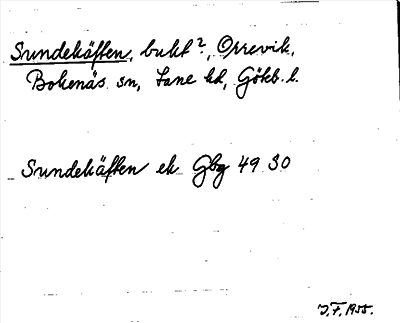 Sundekäften, bukt?, Orrevik,
Bokenäs sn, Lane hd, Göteb. l.
Sundekäften ek Gbg 49 30
J.F. 1955.